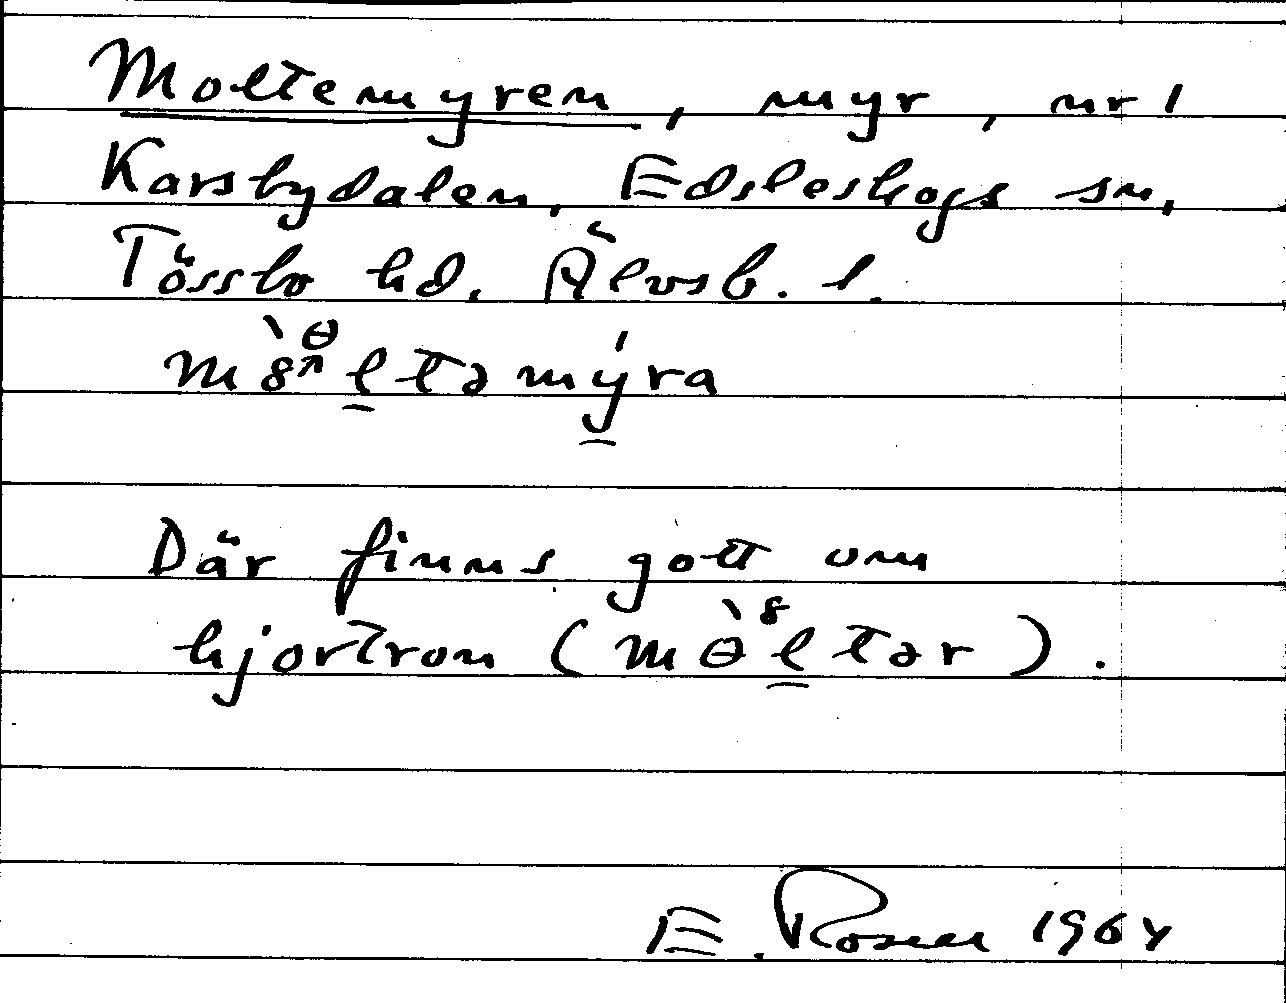 Moltemyren, myr, nr 1
Karsbydalen, Edsleskogs sn,
Tössbo hd. Älvsb. l.
Där finns gott om
hjortron (mɵ̀ltər).
E. Rosell 1964